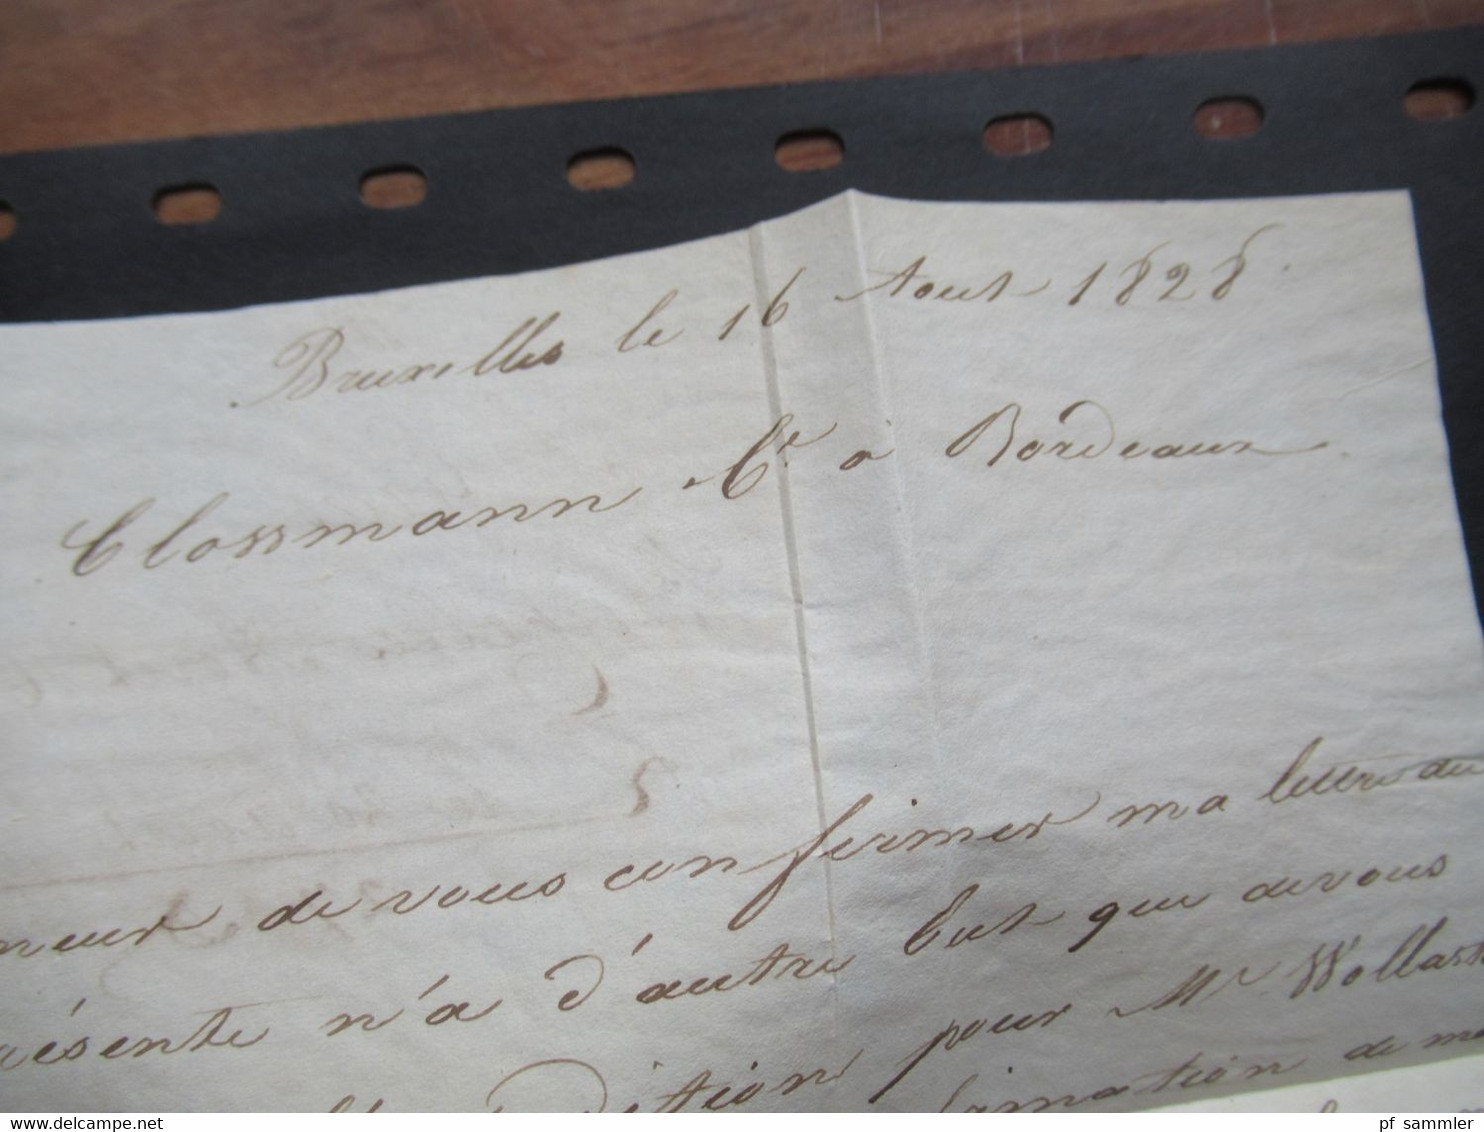 Bruxelles le 16 Aout 1828.
Clossmann Ce a Bordeaux
neur de vous confirmer ma lettre du
ésente n'a d'autre but que de vous
dition pour Mr Wollast
mation de ma
pf_sammler